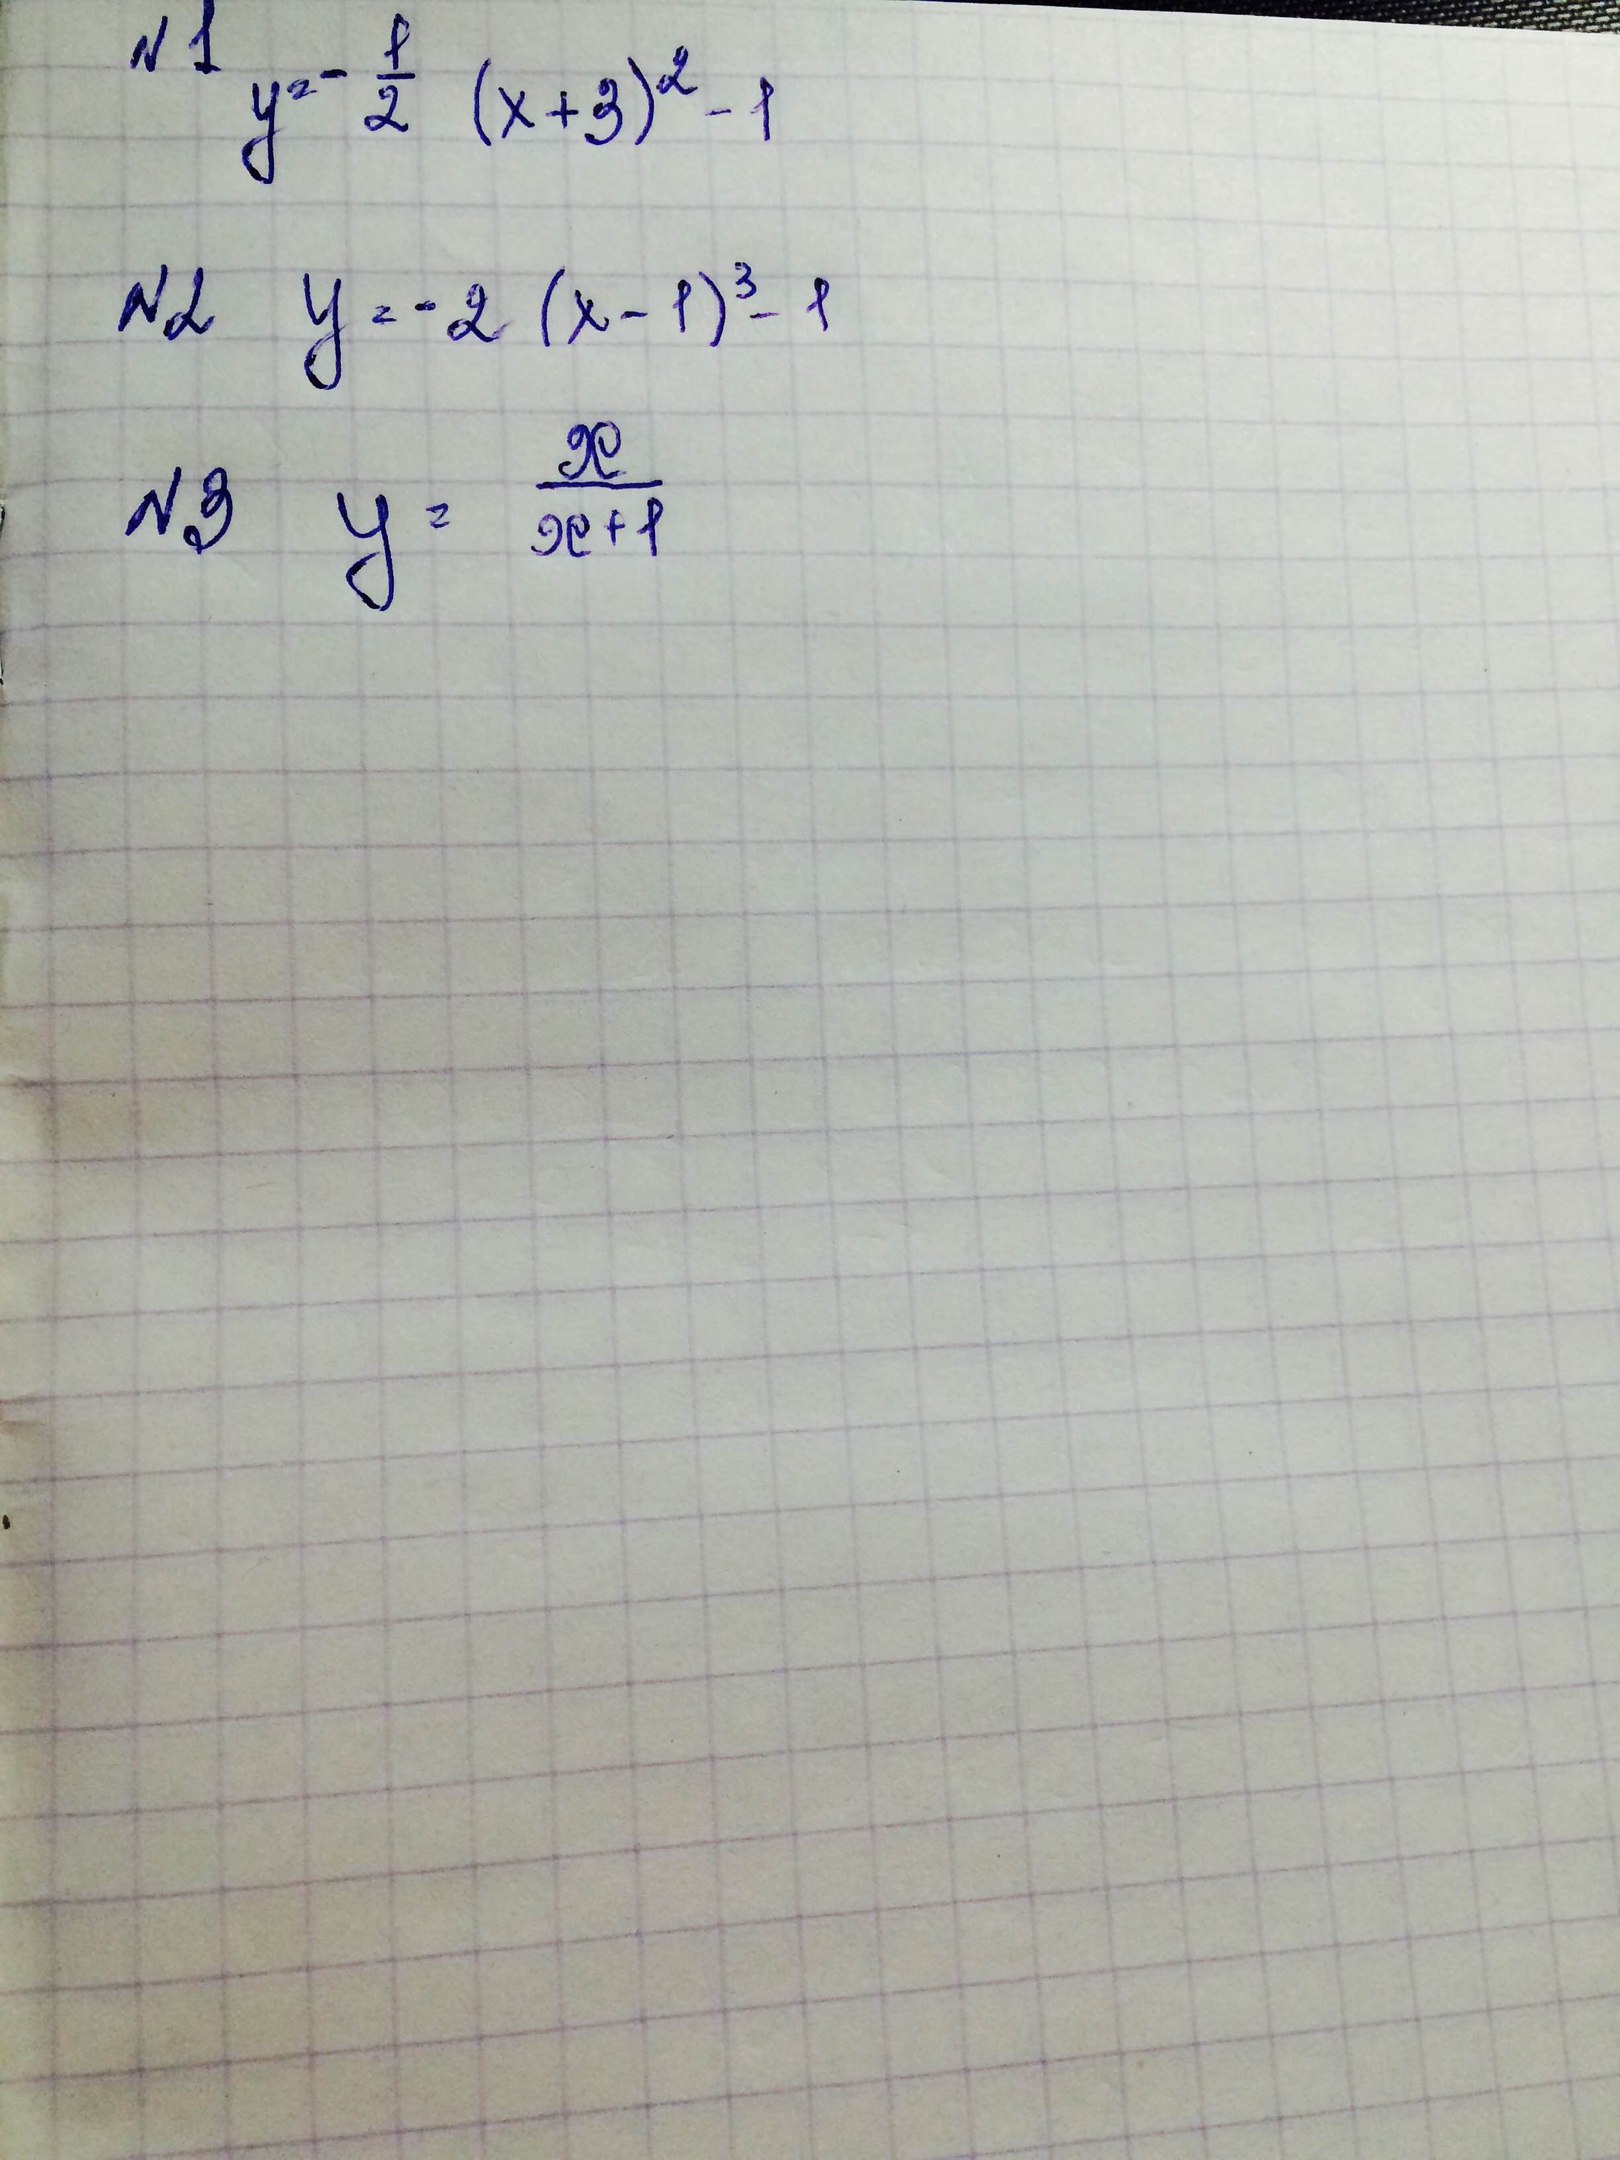 N1 y = - 1/2 (x+3)² - 1
N2 y = -2 (x - 1)³ - 1
N3 y = x/(x+1)